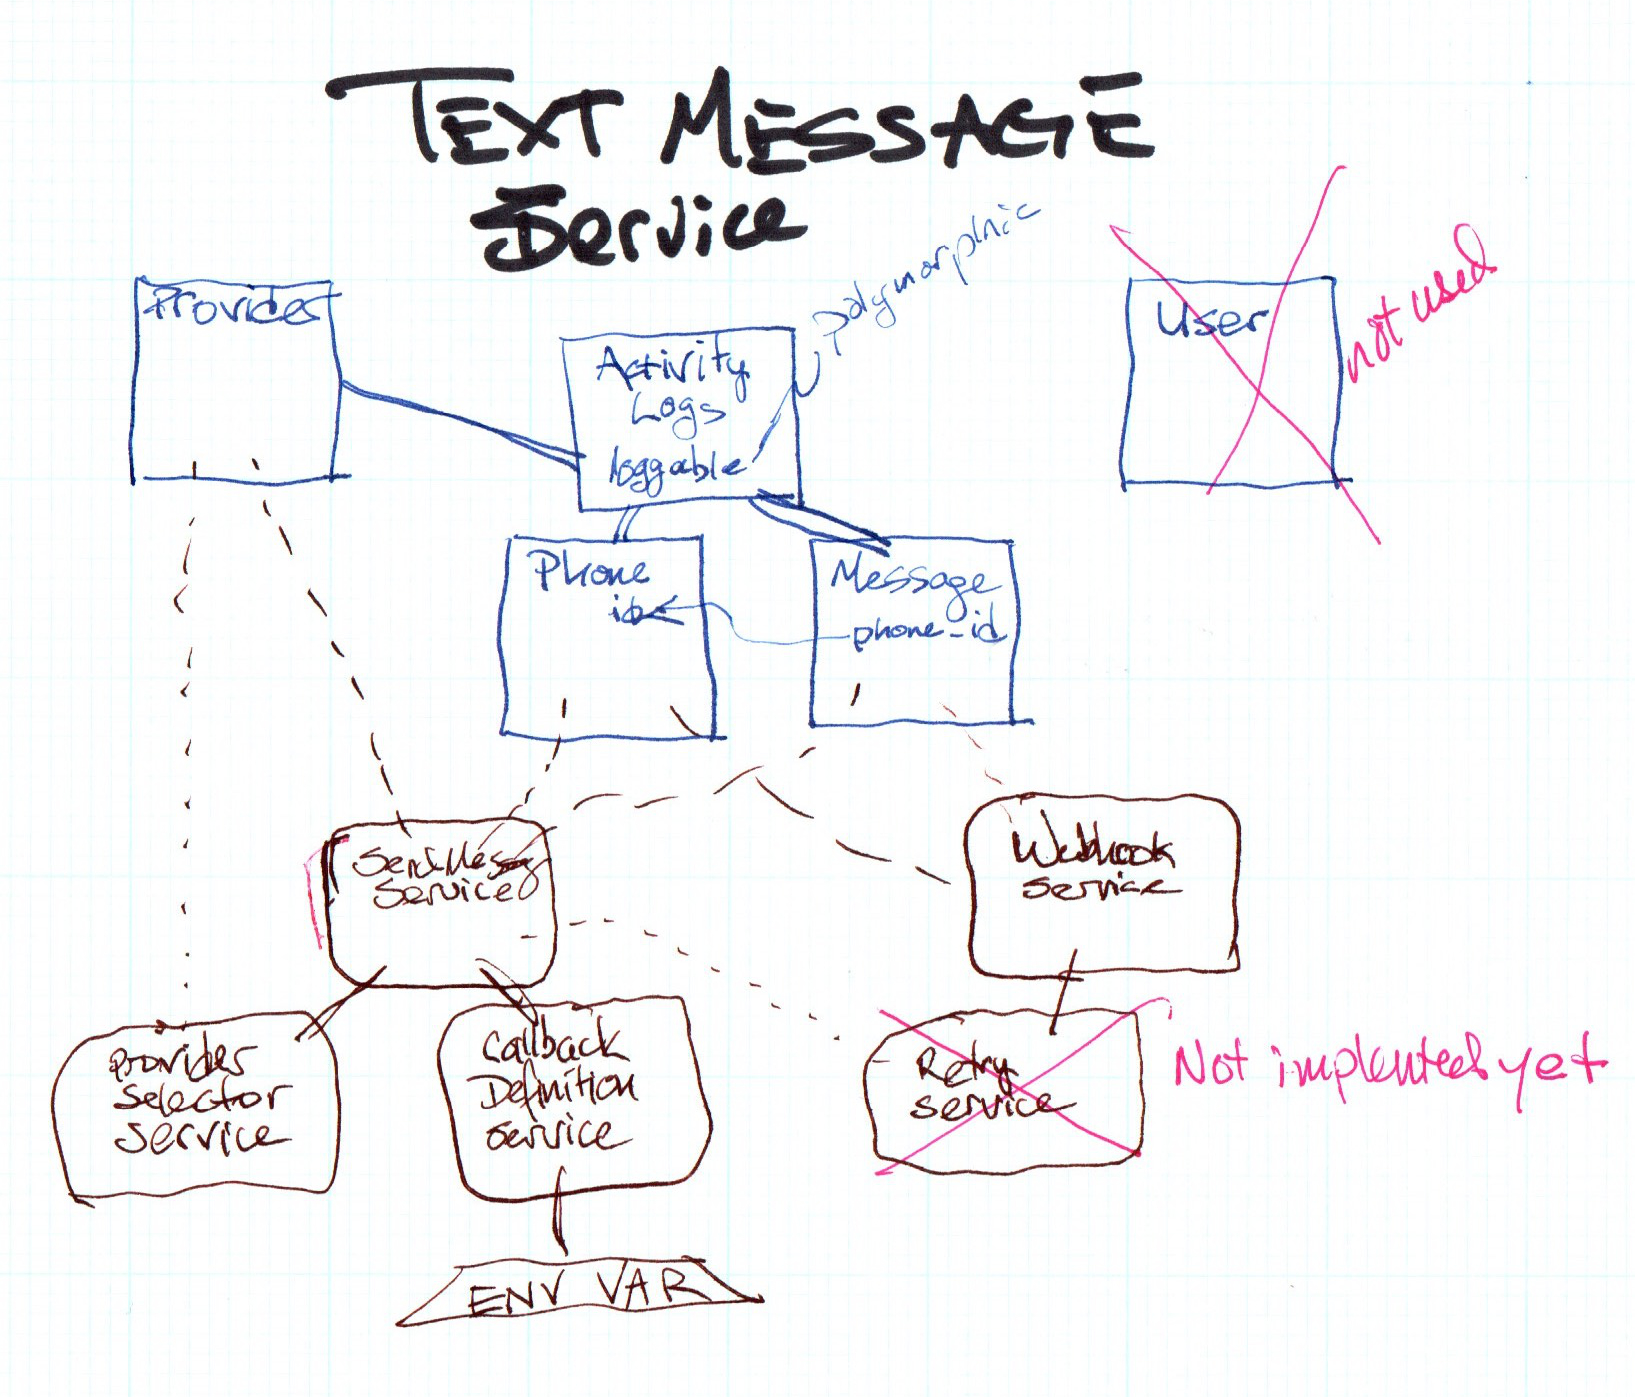 TEXT MESSAGE
Service
Provider
Activity
Logs
loggable
polymorphic
User
not used
Phone
id
Message
phone-id
Send Messag
Service
Webhook
Service
Provider
Selector
Service
Callback
Definition
Service
Retry
Service
Not implented yet
ENV VAR